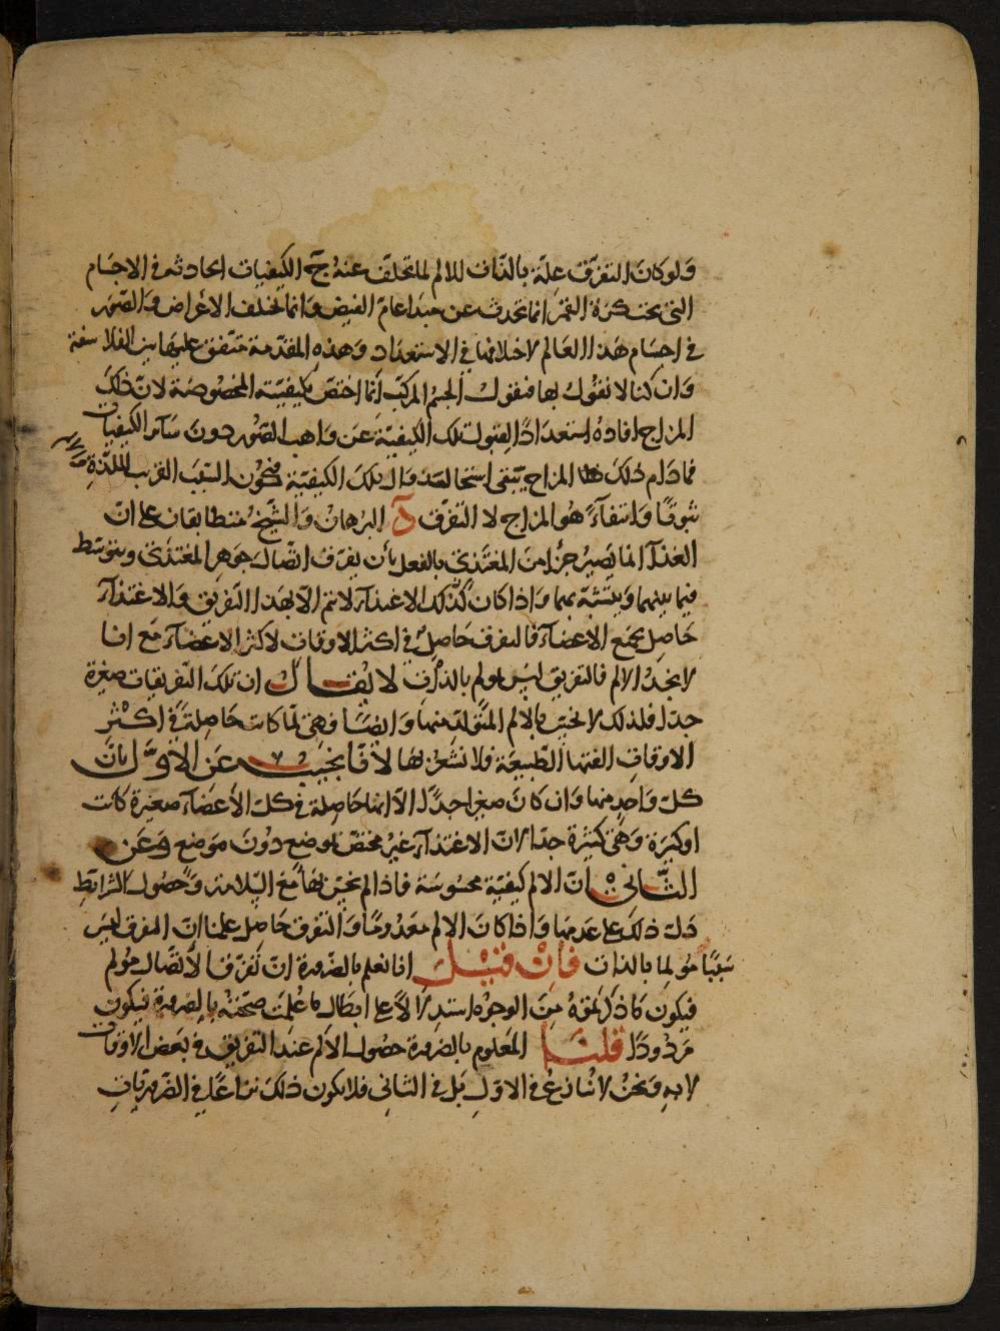 ولو كان التفرق علة بالذات للالم لما تخلف عنه ج الكيفيات الحادثة في الاجسام
التي تحت كرة القمر انما تحدث عن مبدا عام الفيض وانما تختلف الاعراض والصور
في اجسام هذا العالم لاختلافها في الاستعداد وهذه المقدمة متفق عليها بين الفلاسفة
وان كنا لا نقول بها فنقول الجسم المركب انما اختص بكيفيته المخصوصة لان ذلك
المزاج افاده استعدادا لقبول تلك الكيفية عن واهب الصور دون سائر الكيفيات
فما دام ذلك المزاج يبقى استحال عنه زوال تلك الكيفية فيكون السبب القريب للذة
ثبوتا وانتفاء هو المزاج لا التفرق د البرهان والشيخ متطابقان على ان
الغذا انما يصير جزا من المغتذي بالفعل بان يفرق اتصال جوهر المغتذي ويتوسط
فيما بينهما ويتشبه بهما واذا كان كذلك الاغتذاء لا يتم الا بهذا التفريق والاغتذاء
حاصل بجميع الاعضاء فالتفرق حاصل في اكثر الاوقات لاكثر الاعضاء مع انا
لا نجد الالم فالتفريق ليس مولم بالذات لا يقال ان تلك التفريقات صغيرة
جدا فلذلك لا نحس بالالم المتولد منها وايضا فهي لما كانت حاصلة في اكثر
الاوقات الفتها الطبيعة فلا نشعر بها لانا نجيب عن الاول بان
كل واحد منها وان كان صغيرا جدا الا انها حاصلة في كل الاعضاء صغيرة كانت
او كبيرة وهي كثيرة جدا لان الاغتذاء غير مختص بموضع دون موضع وعن
الثاني ان الالم كيفية محسوسة فاذا لم نحس بها مع السلامة وحصول الشرايط
دل ذلك على عدمها واذا كان الالم معدوما والتفرق حاصل علمنا ان المفرق ليس
سببا مولما بالذات فان قيل انا نعلم بالضرورة ان تفرق الاتصال مولم
فيكون ما ذكرتموه من الوجوه استدلالا على ابطال ما علمت صحته بالضرورة فيكون
مردودا قلنا المعلوم بالضرورة حصول الالم عند التفريق في بعض الاوقات
لا به ونحن لا ننازع في الاول بل في الثاني فلا يكون ذلك نزاعا في الضروريات